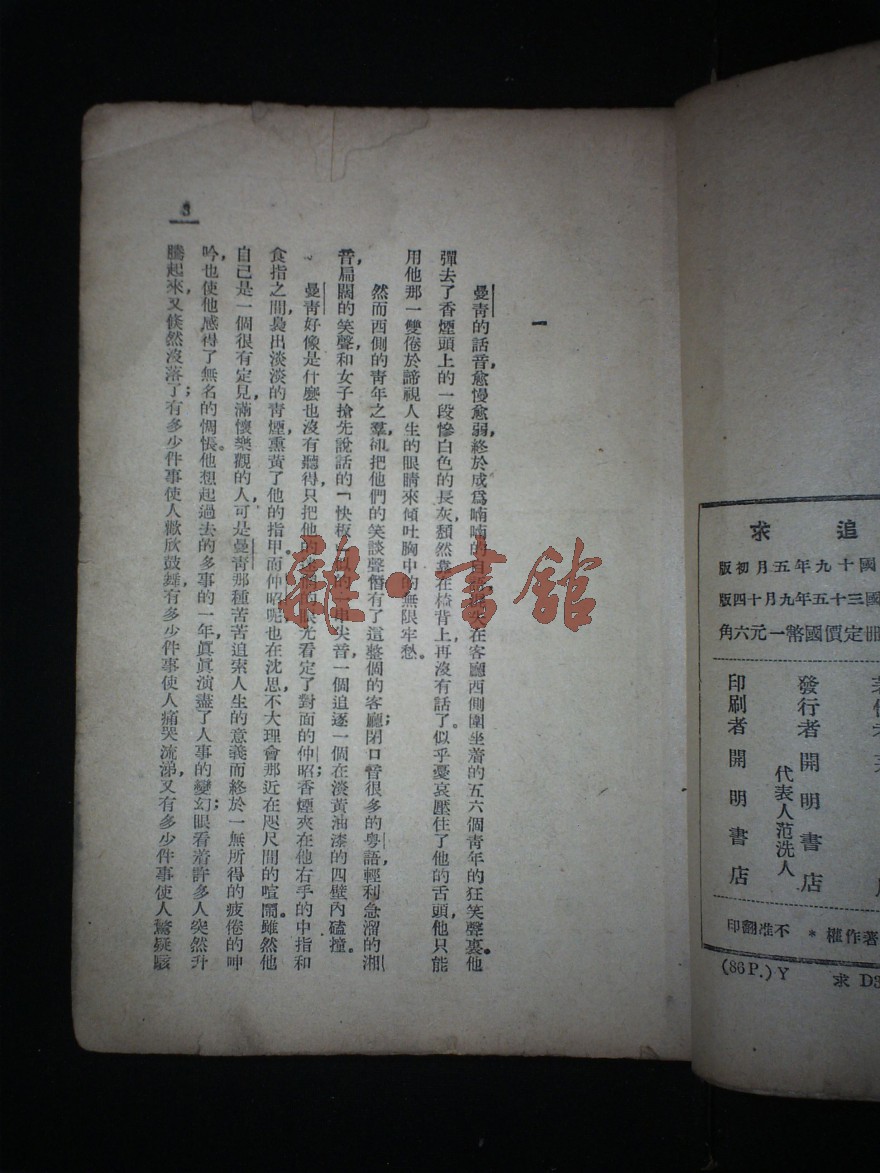 求 追
國十九年五月初版
國三十五年九月十四版
冊定價國幣一元六角
發行者 開明書店
代表人范洗人
印刷者 開明書店
著作權 * 不准翻印
(86 P.) Y 求 D3
一
曼青的話音愈慢愈弱,終於成爲喃喃的自在客廳西側圍坐着的五六個青年的狂笑聲裏。他
彈去了香煙頭上的一段慘白色的長灰,頹然靠在椅背上,再沒有話了。似乎憂哀壓住了他的舌頭,他只能
用他那一雙倦於諦視人生的眼睛來傾吐胸中的無限牢愁。
然而西側的青年之羣,卻把他們的笑談聲僭有了這整個的客廳;閉口音很多的粤語,輕利急溜的湘
音,扁闊的笑聲,和女子搶先說話的「快板」似的一串尖音,一個追逐一個在淡黃油漆的四壁內磕撞。
曼青好像是什麼也沒有聽得,只把他的眼光看定了對面的仲昭;香煙夾在他右手的中指和
食指之間,裊出淡淡的青煙,熏黃了他的指甲。而仲昭呢,也在沈思,不大理會那近在咫尺間的喧鬧。雖然他
自己是一個很有定見,滿懷樂觀的人,可是曼青那種苦苦追索人生的意義而終於一無所得的疲倦的呻
吟,也使他感得了無名的惆悵。他想起過去的多事的一年,眞眞演盡了人事的變幻;眼看着許多人突然升
騰起來,又倏然沒落了;有多少件事使人歡欣鼓舞,有多少件事使人痛哭流涕,又有多少件事使人驚疑駭
3
雜·書館